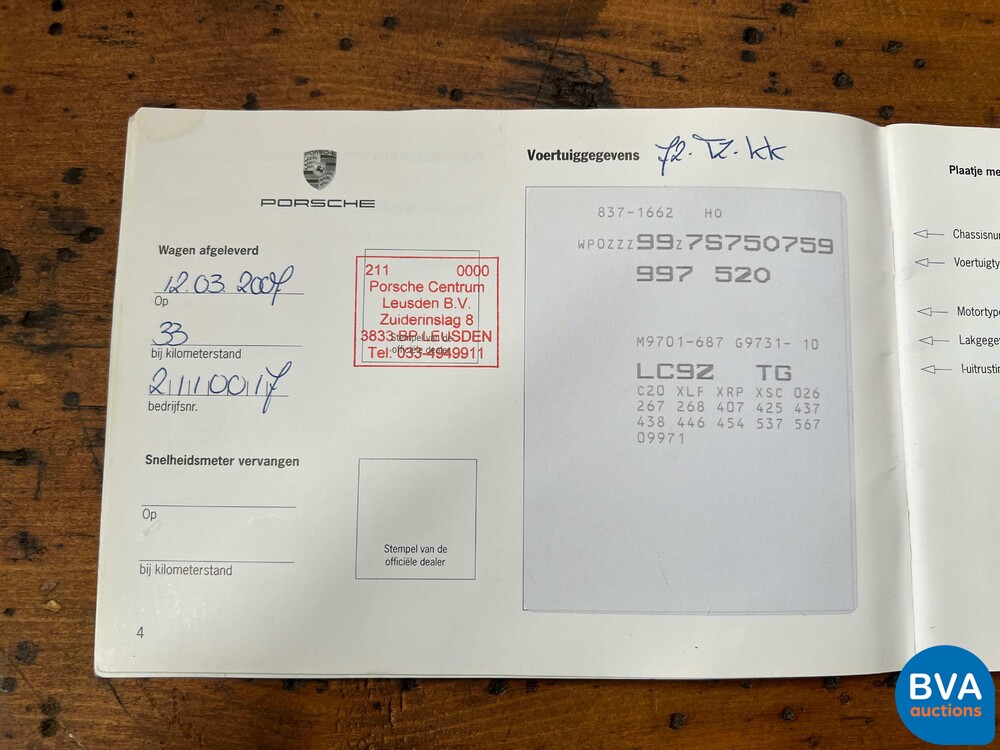 PORSCHE
PORSCHE
Wagen afgeleverd
12.03.2007
Op
33
bij kilometerstand
211100117
bedrijfsnr.
211 0000
Porsche Centrum
Leusden B.V.
Zuiderinslag 8
3833 BP LEUSDEN
Tel: 033-4949911
Stempel van de
officiële dealer
Snelheidsmeter vervangen
Op
bij kilometerstand
Stempel van de
officiële dealer
4
Voertuiggegevens 72-TZ-KK
837-1662 HO
WPOZZZ99Z7S750759
997 520
M9701-687 G9731- 10
LC9Z TG
C20 XLF XRP XSC 026
267 268 407 425 437
438 446 454 537 567
09971
Plaatje me
Chassisnu
Voertuigty
Motortype
Lakgege
I-uitrustin
BVA
auctions